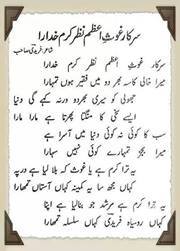 سرکار غوثِ اعظم نظرِ کرم خدارا
شاعر: فریدی صاحب
سرکار غوثِ اعظم نظرِ کرم خدارا
میرا خالی کاسہ بھر دو میں فقیر ہوں تمہارا
جھولی کو میری بھر دو ورنہ کہے گی دنیا
ایسے سخی کا منگتا پھرتا ہے مارا مارا
سب کا کوئی نہ کوئی دنیا میں آسرا ہے
میرا بجز تمہارے کوئی نہیں سہارا
یہ ترا کرم ہے یا غوث کہ بلا لیا ہے در پہ
کہاں مجھ سا یہ کمینہ کہاں آستاں تمہارا
یہ ترا کرم ہے مرشد جو بنا لیا ہے اپنا
کہاں روسیاہ فریدی کہاں سلسلہ تمھارا